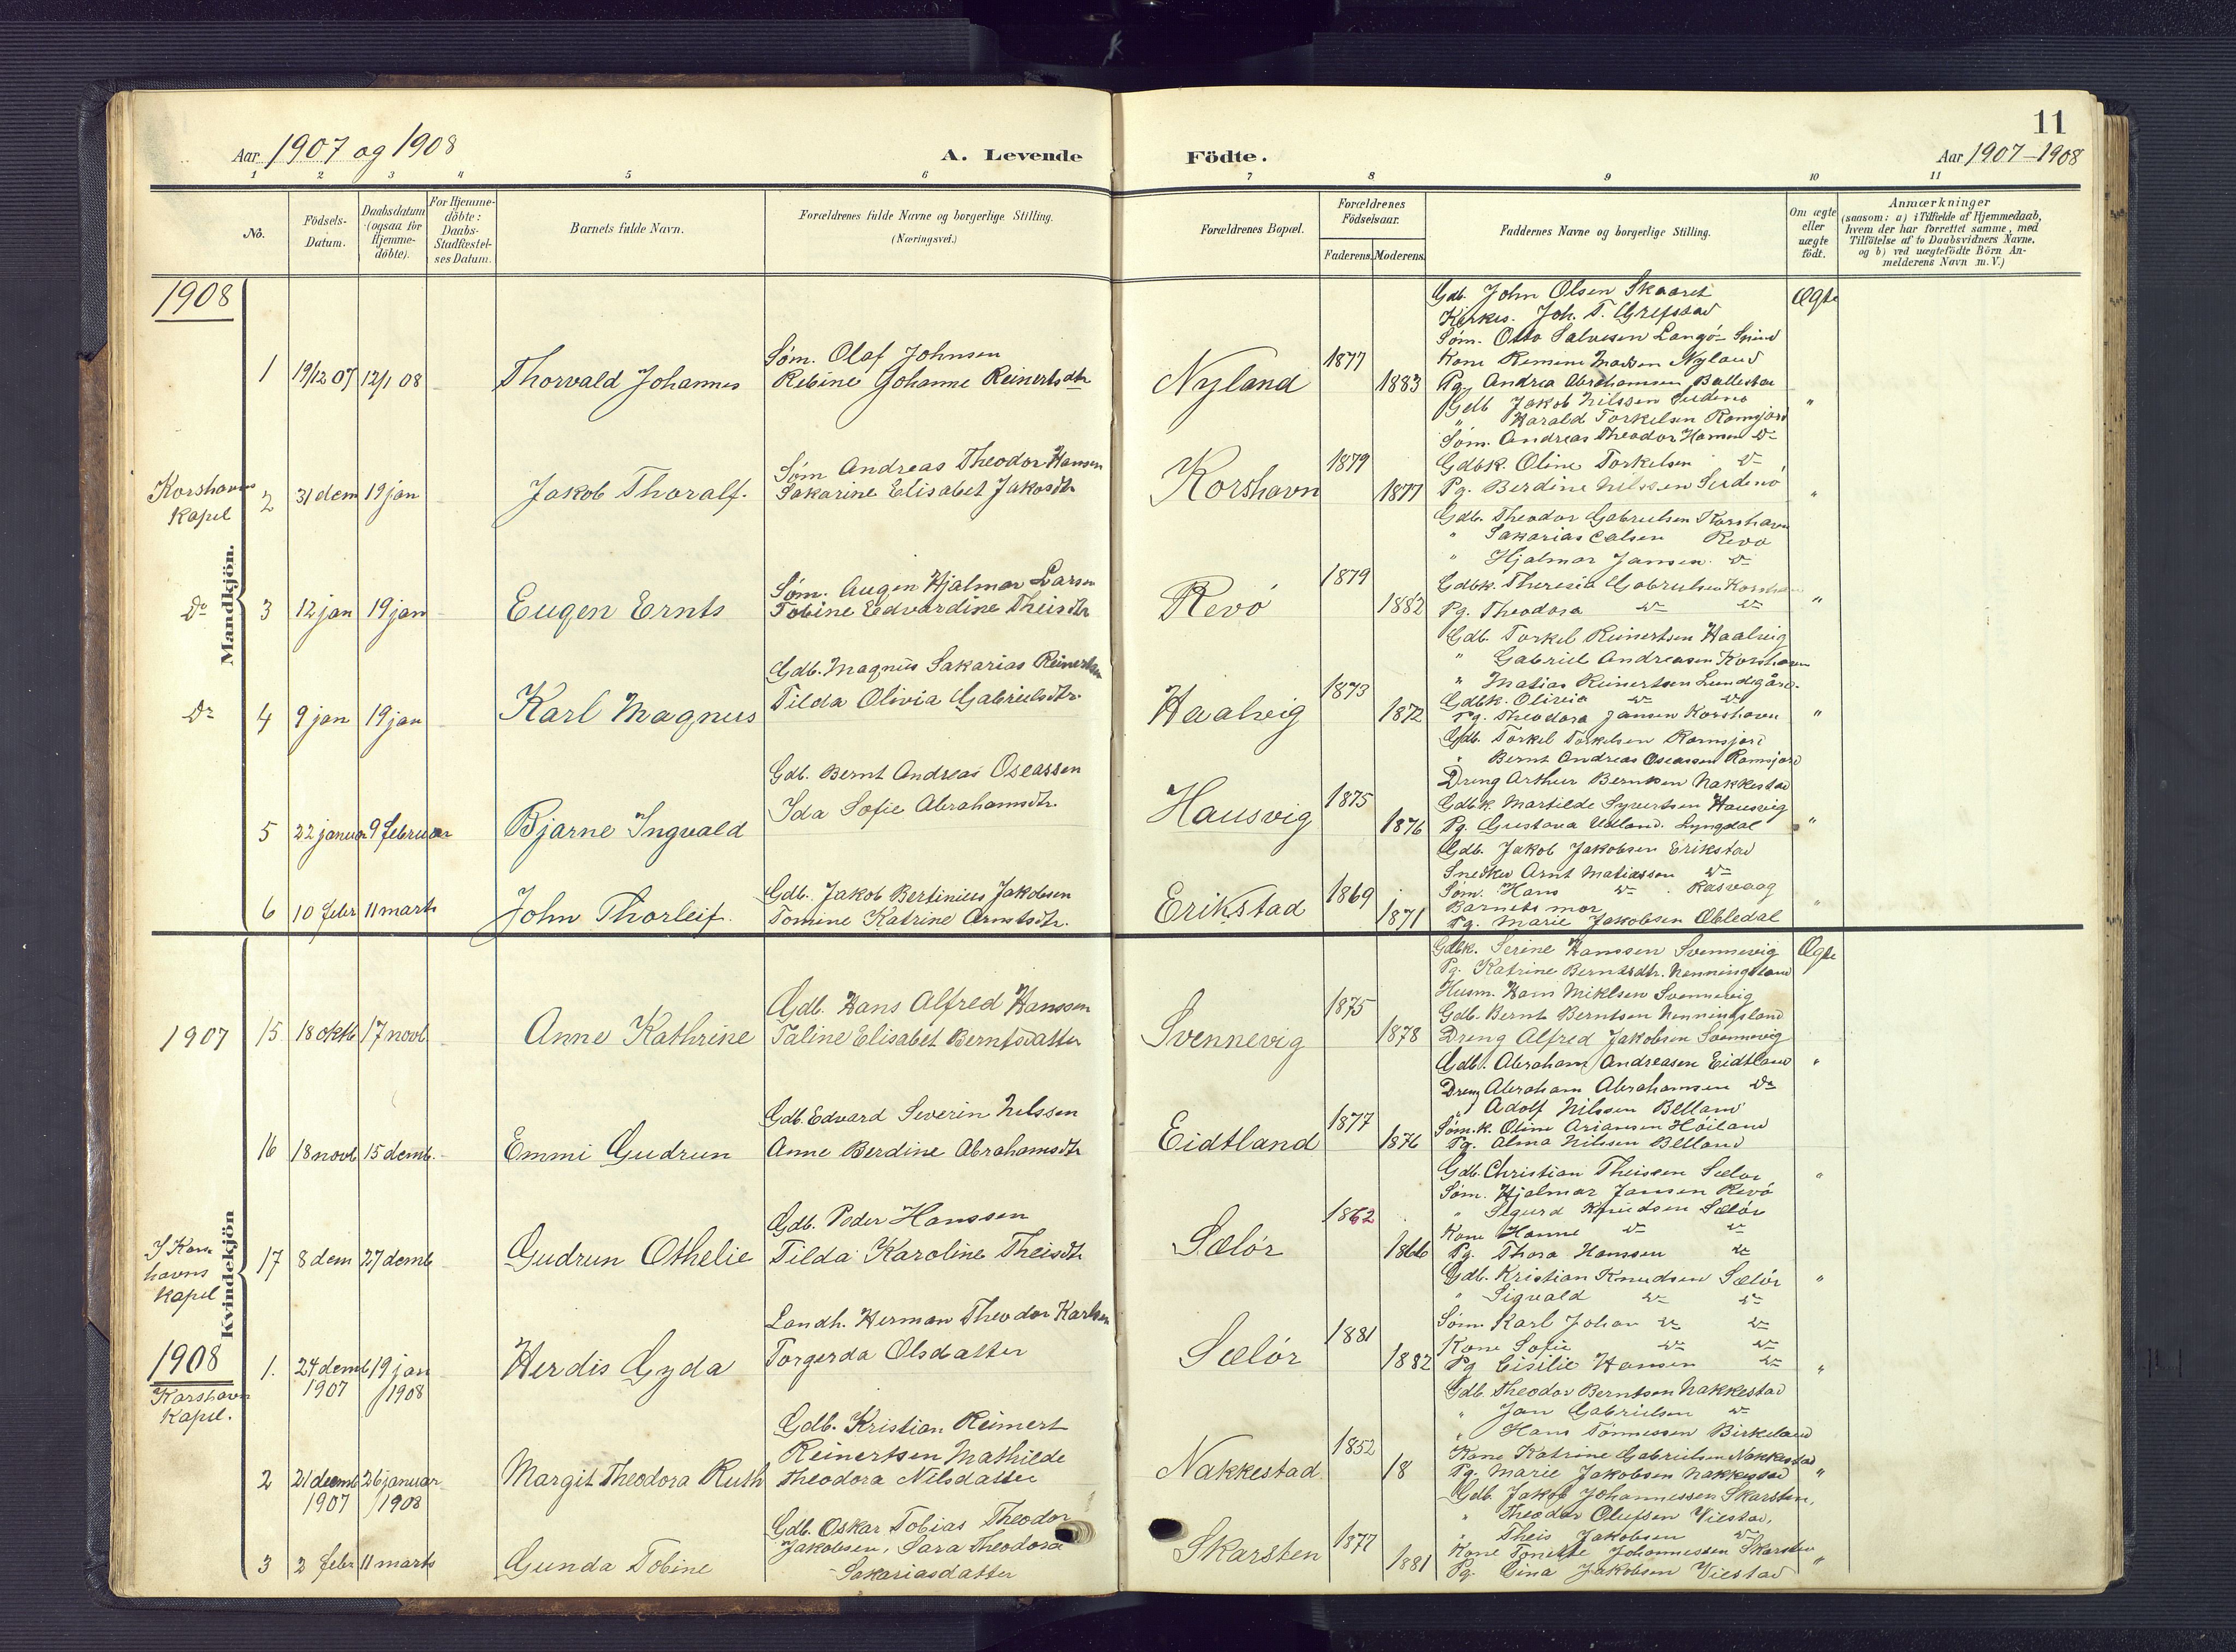 11
Aar 1907 og 1908
A. Levende
Födte.
Aar 1907-1908
1 2 3 4 5 6 7 8 9 10 11
No.
Födsels-
Datum.
Daabsdatum
(ogsaa for
Hjemme-
döbte).
For Hjemme-
döbte:
Daabs-
Stadfæstel-
ses Datum.
Barnets fulde Navn.
Forældrenes fulde Navne og borgerlige Stilling.
(Næringsvei.)
Forældrenes Bopæl.
Forældrenes
Födselsaar.
Faderens. Moderens.
Faddernes Navne og borgerlige Stilling.
Om ægte
eller
uægte
födt.
Anmærkninger
(saasom: a) i Tilfælde af Hjemmedaab,
hvem der har forrettet samme, med
Tilföielse af to Daabsvidners Navne,
og b) ved uægtefödte Börn An-
melderens Navn m. V.)
Mandkjön.
1908
1 19/12 07 12/1 08
Thorvald Johannes
Söm. Olaf Johnsen
Rebine Johanne Reinertsdtr
Nyland
1877
1883
Gdb. John Olsen Skaaret
Kirkes. Joh. T. Grefstad
Söm. Otto Salvesen Langö - Spind
Kone Remine Madsen Nyland
Pg. Andrea Abrahamsen Ballestad
Ægte
Korshavns
Kapel
2 31 dem 19 jan
Jakob Thoralf.
Söm Andreas Theodor Hansen
Sakarine Elisabet Jakobsdtr
Korshavn
1879
1877
Gdb Jakob Nilssen
" Harald Torkelsen Ramsjord
Söm. Andreas Theodor Hansen Do
Gdbk. Oline Torkelsen Do
Pg. Berdine Nilssen
"
Do
3 12 jan 19 jan
Eugen Ernts
Söm. Augen Hjalmar Larsen
Tobine Edvardine Theisdtr
Revö
1879
1882
Gdb. Theodor Gabrielsen Korshavn
" Sakarias Calsen Revö
" Hjalmar Jansen Do
Gdbk. Theresia Gabrielsen Korshavn
Pg. Theodora Do Do
"
Do
4 9 jan 19 jan
Karl Magnus
Gdb. Magnus Sakarias Reinertsen
Tilda Olivia Gabrielsdtr.
Haalvig
1873
1872
Gdb. Torkel Reinertsen Haalvig
" Gabriel Andreasen Korshavn
" Matias Reinertsen Lundegård.
Gdbk. Olivia Do Do
Pg. Theodora Jansen Korshavn
"
5 22 januar 9 februar
Bjarne Ingvald
Gdb. Bernt Andreas Oseassen
Ida Sofie Abrahamsdtr.
Hausvig
1875
1876
Gdb. Torkel Torkelsen Ramsjord
" Bernt Andreas Oseassen Ramsjord
Dreng Arthur Berntsen Nakkestad
Gdbk. Martilde Syvertsen Hausvig
Pg. Gustava Udland. Lyngdal
"
6 10 febr 11 marts
John Thorleif.
Gdb. Jakob Bertinius Jakobsen
Tomine Katrine Arntsdtr.
Erikstad
1869
1871
Gdb. Jakob Jakobsen Erikstad
Snedker Arnt Matiassen Do
Söm. Hans Do . Rasvaag
Barnets mor
Pg. Marie Jakobsen Öbledal
"
Kvindekjön
1907
15 18 oktb 17 novb
Anne Kathrine
Gdb. Hans Alfred Hanssen
Taline Elisabet Berntsdatter
Svennevig
1875
1878
Gdbk. Serine Hanssen Svennevig
Pg. Katrine Berntsdtr. Nenningsland
Husm. Hans Miklsen Svennevig
Gdb. Bernt Berntsen Nenningsland
Dreng Alfred Jakobsen Svennevig
Ægte
16 18 novb 15 demb.
Emmi Gudrun
Gdb. Edvard Severin Nilssen
Anne Berdine Abrahamsdtr
Eidtland
1877
1876
Gdb. Abraham Andreasen Eidtland
Dreng Abraham Abrahamsen Do
" Adolf Nilssen Belland
Söm.k. Oline Ariansen Höiland
Pg. Alma Nilssen Belland
"
I Kors
havns
Kapel
17 8 dem 27 demb
Gudrun Othelie
Gdb. Peder Hanssen
Tilda Karoline Theisdtr
Sælör
1862
1866
Gdb. Christian Theissen Sælör
Söm. Hjalmar Jansen Revö
" Sigurd Knudsen Sælör
Kone Hanne Do Do
Pg. Thora Hanssen Do
"
1908
Korshavn
Kapel.
1. 24 demb 19 jan
1907 1908
Herdis Gyda
Landh. Herman Theodor Karlsen
Torgerda Olsdatter
Sælör
1881
1882
Gdb. Kristian Knudsen Sælör
" Sigvald Do Do
Söm Karl Johan Do Do
Kone Sofie Do Do
Pg Cisilie Hansen Do
"
2 21 demb 26 januar
1907 1908
Margit Theodora Ruth
Gdb. Kristian Reinert
Reinertsen Mathilde
Theodora Nilsdatter
Nakkestad.
1852
18
Gdb. Theodor Berntsen Nakkestad
" Jan Gabrielsen Do
" Hans Tönnessen Birkeland
Kone Katrine Gabrielsen Nakkestad
Pg. Marie Jakobsen Nakkestad
"
3 2 febr 11 marts
Gunda Tobine
Gdb. Oskar Tobias Theodor
Jakobsen, Sara Theodora
Sakariasdatter
Skarsten
1877
1881
Gdb. Jakob Johannessen Skarsten,
" Theodor Olufsen Vierstad,
" Theis Jakobsen Do
Kone Tonette Johannessen Skarsten
Pg. Cina Jakobsen Vierstad
"